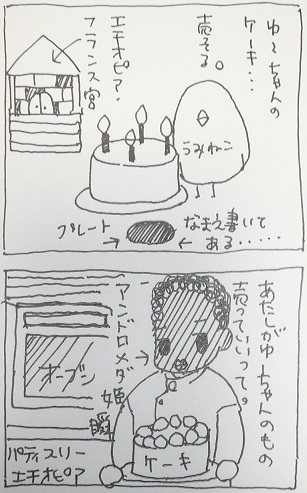 ゆーちゃんの
ケーキ…
売そる。
エチオピア・
フランス宮
うみねこ
プレート
なまえ書いて
ある・・・・・
あたしがゆーちゃんのもの
売っていいって。
アンドロメダ姫
瞬
オーブン
ケーキ
パティスリー
エチオピア